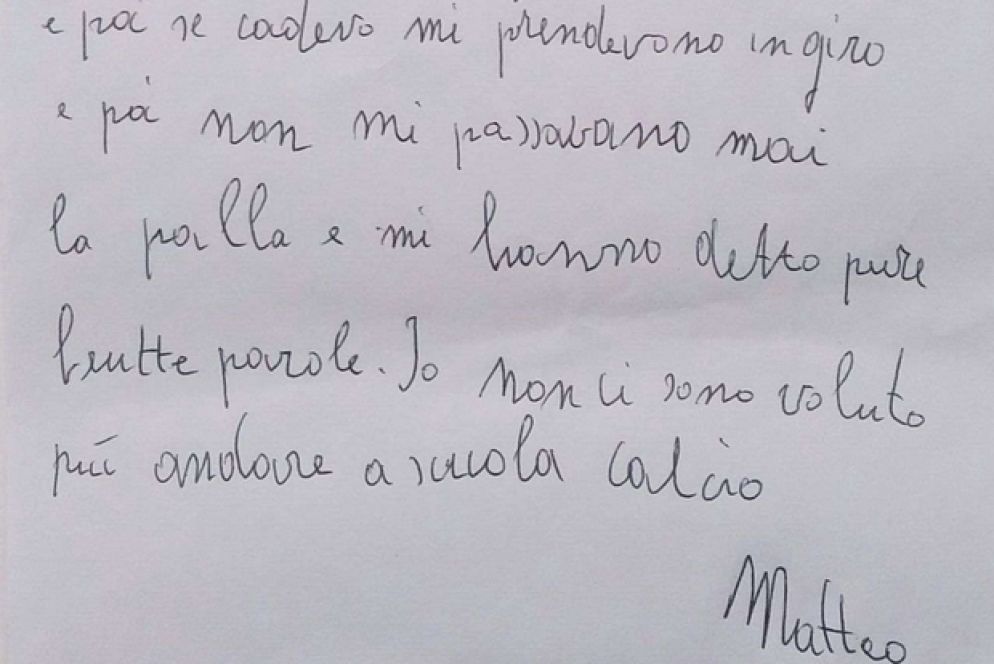 e poi se cadevo mi prendevono in giro
e poi non mi passavano mai
la palla e mi hanno detto pure
brutte parole. Io non ci sono voluto
più andare a scuola calcio
Matteo